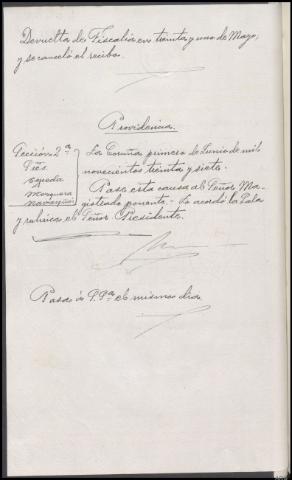 Devuelta de Fiscalía en treinta y uno de Mayo,
y se canceló el recibo.
Providencia.
Sección 2ª
Sres.
La Coruña, primero de Junio de mil
novecientos treinta y siete.
Pase esta causa al Señor Ma-
gistrado ponente. Lo acordó la Sala
y rubrica el Señor Presidente.
Pasa á P. el mismo día